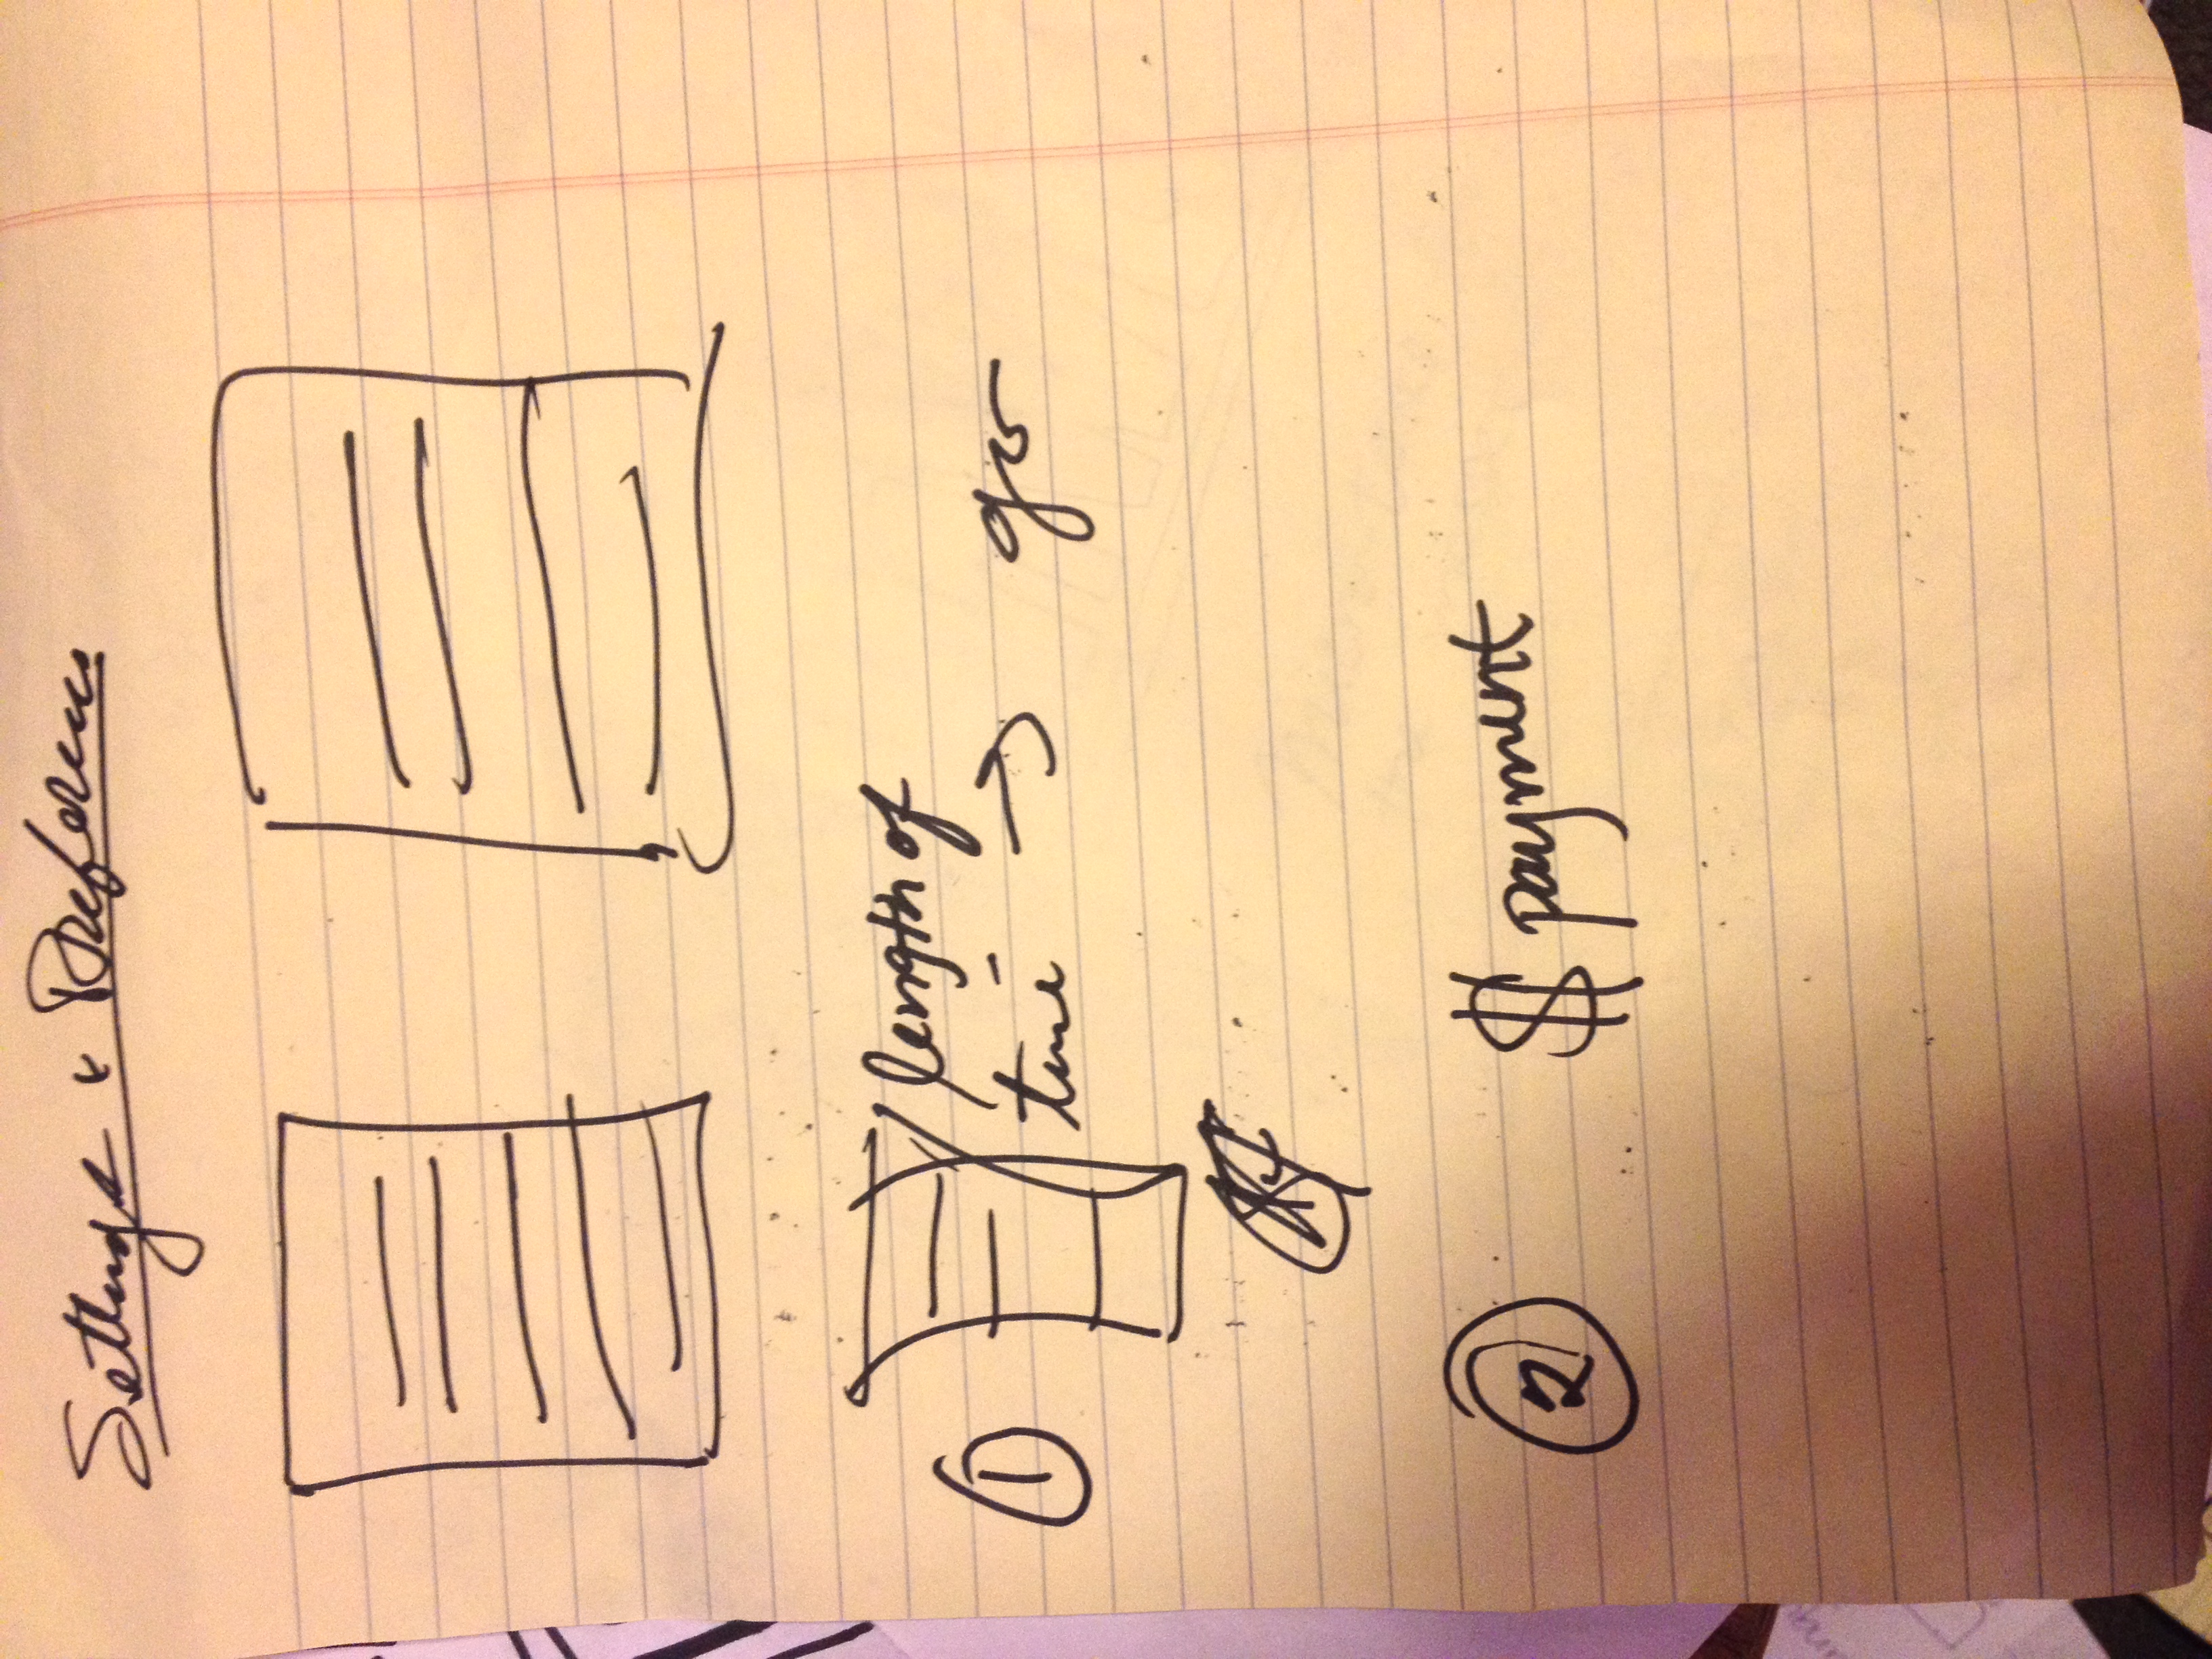 Settings & Preferences
① length of
time → go
② $ payment